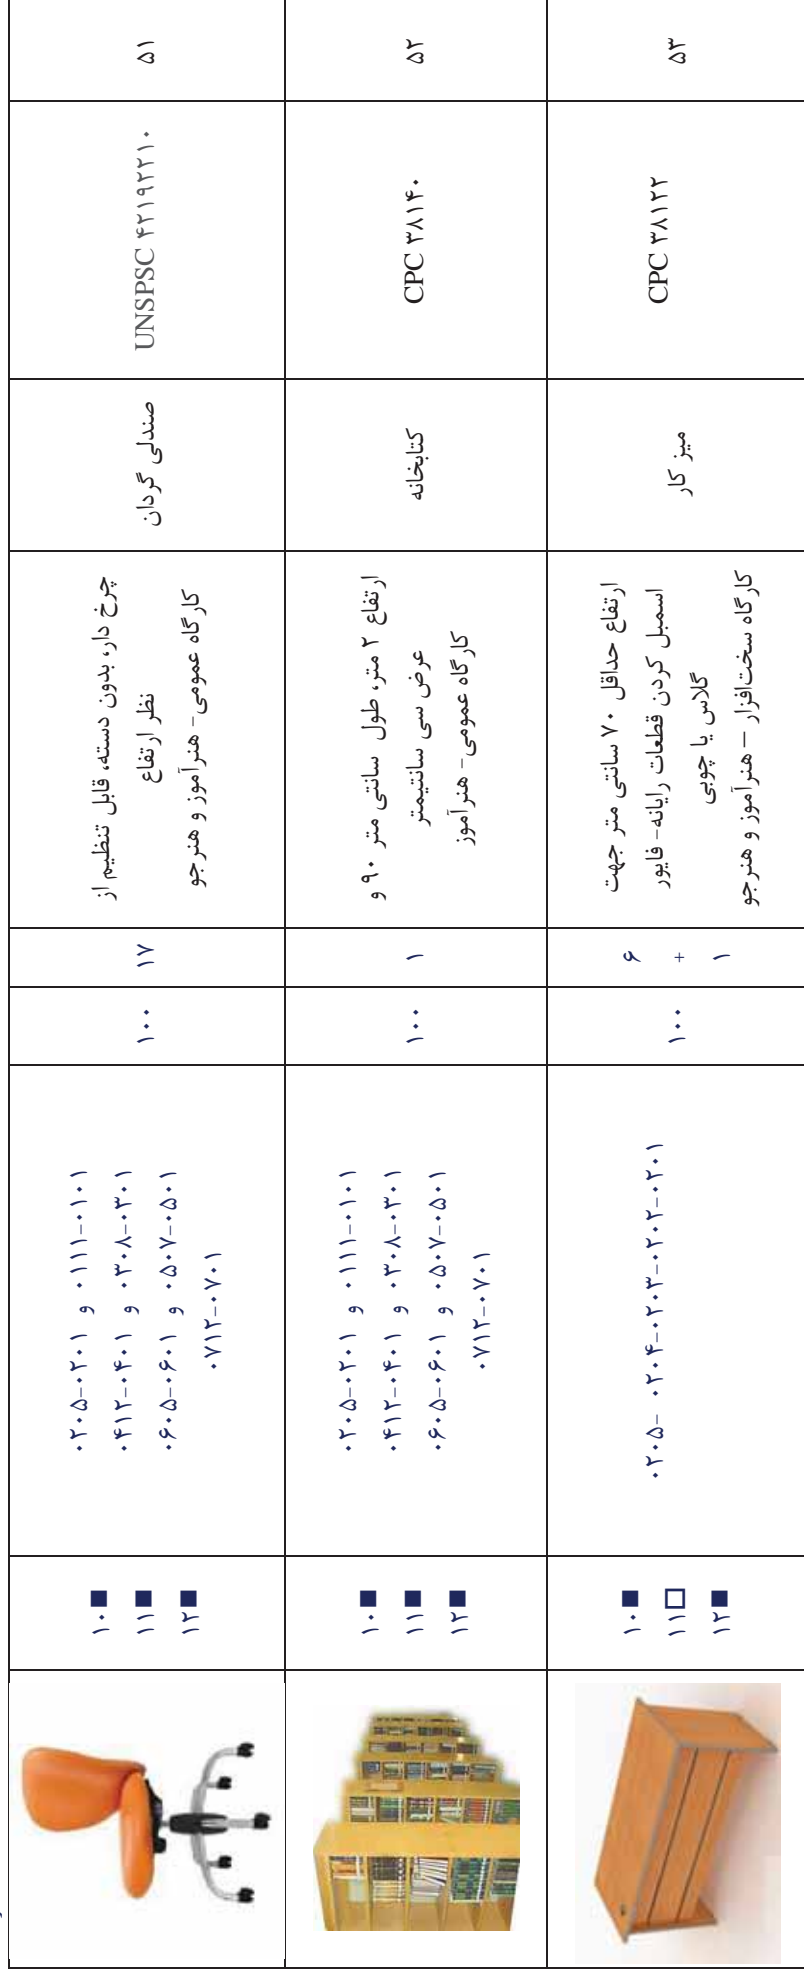 ۵۱
UNSPSC ۴۲۱۹۲۲۱۰
صندلی گردان
چرخ دار، بدون دسته، قابل تنظیم از
نظر ارتفاع
کارگاه عمومی- هنرآموز و هنرجو
۱۷
۱۰۰
۰۱۰۱-۰۱۱۱ و ۰۲۰۱-۰۲۰۵
۰۳۰۱-۰۳۰۸ و ۰۴۰۱-۰۴۱۲
۰۵۰۱-۰۵۰۷ و ۰۶۰۱-۰۶۰۵
۰۷۰۱-۰۷۱۲
۱۰ ■
۱۱ ■
۱۲ ■
۵۲
CPC ۳۸۱۴۰
کتابخانه
ارتفاع ۲ متر، طول سانتی متر ۹۰ و
عرض سی سانتیمتر
کارگاه عمومی- هنرآموز
۱
۱۰۰
۰۱۰۱-۰۱۱۱ و ۰۲۰۱-۰۲۰۵
۰۳۰۱-۰۳۰۸ و ۰۴۰۱-۰۴۱۲
۰۵۰۱-۰۵۰۷ و ۰۶۰۱-۰۶۰۵
۰۷۰۱-۰۷۱۲
۱۰ ■
۱۱ ■
۱۲ ■
۵۳
CPC ۳۸۱۲۲
میز کار
ارتفاع حداقل ۷۰ سانتی متر جهت
اسمبل کردن قطعات رایانه- فایور
گلاس یا چوبی
کارگاه سخت‌افزار – هنرآموز و هنرجو
۶
+
۱
۱۰۰
۰۲۰۱-۰۲۰۲-۰۲۰۳-۰۲۰۴ -۰۲۰۵
۱۰ ■
۱۱ □
۱۲ ■